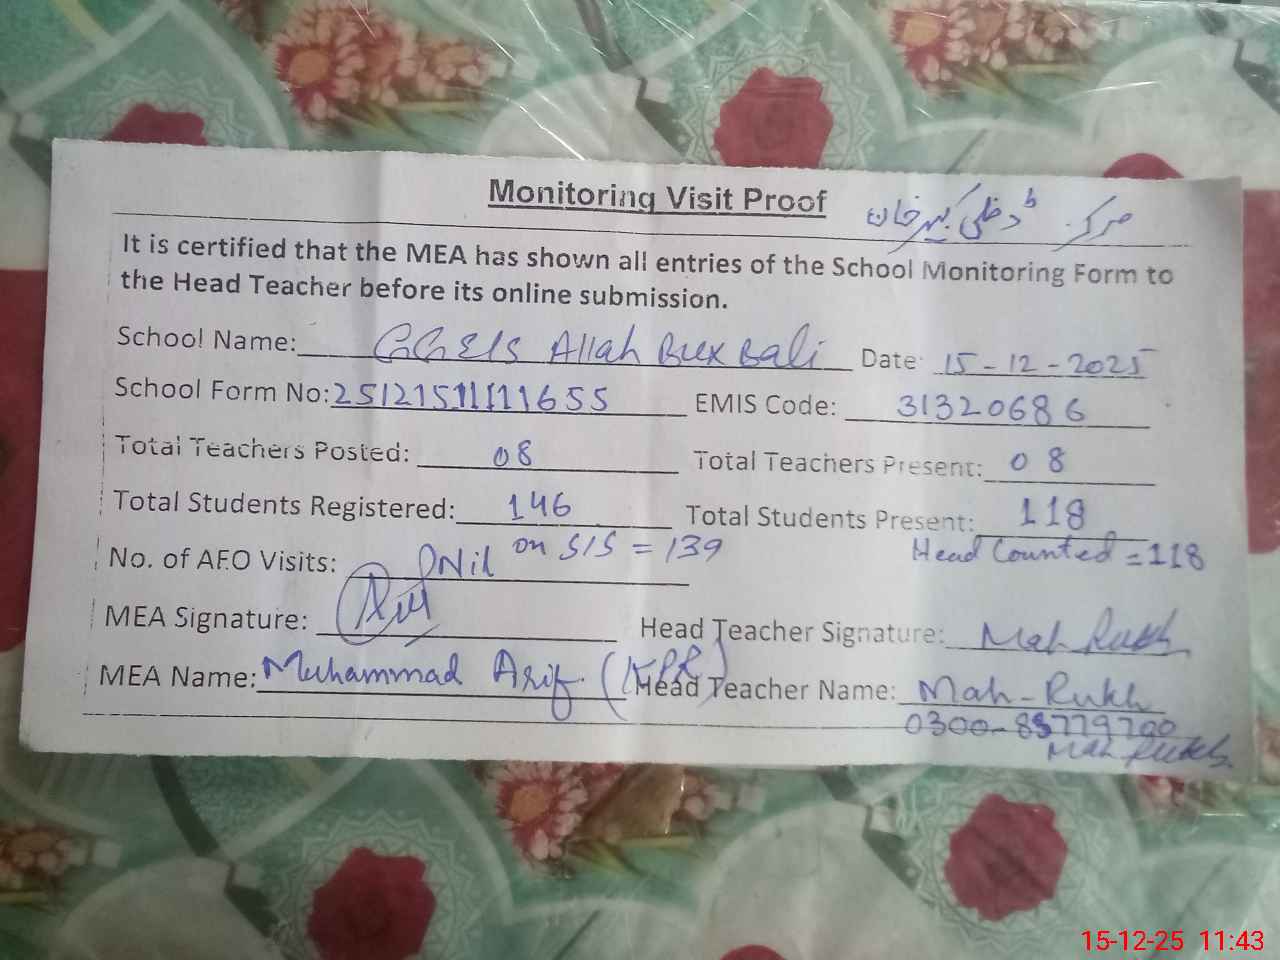 Monitoring Visit Proof
مرکز
It is certified that the MEA has shown all entries of the School Monitoring Form to
the Head Teacher before its online submission.
School Name: GGE/S Allah Bux Bali Date: 15-12-2025
School Form No: 2512151111655 EMIS Code: 31320686
Total Teachers Posted: 08 Total Teachers Present: 08
Total Students Registered: 146 Total Students Present: 118
on SIS = 139 Head Counted = 118
No. of AEO Visits: Nil
MEA Signature: Head Teacher Signature: Mah Rukh
MEA Name: Muhammad Arif. (KPR) Head Teacher Name: Mah-Rukh
Mah Rukh
15-12-25 11:43